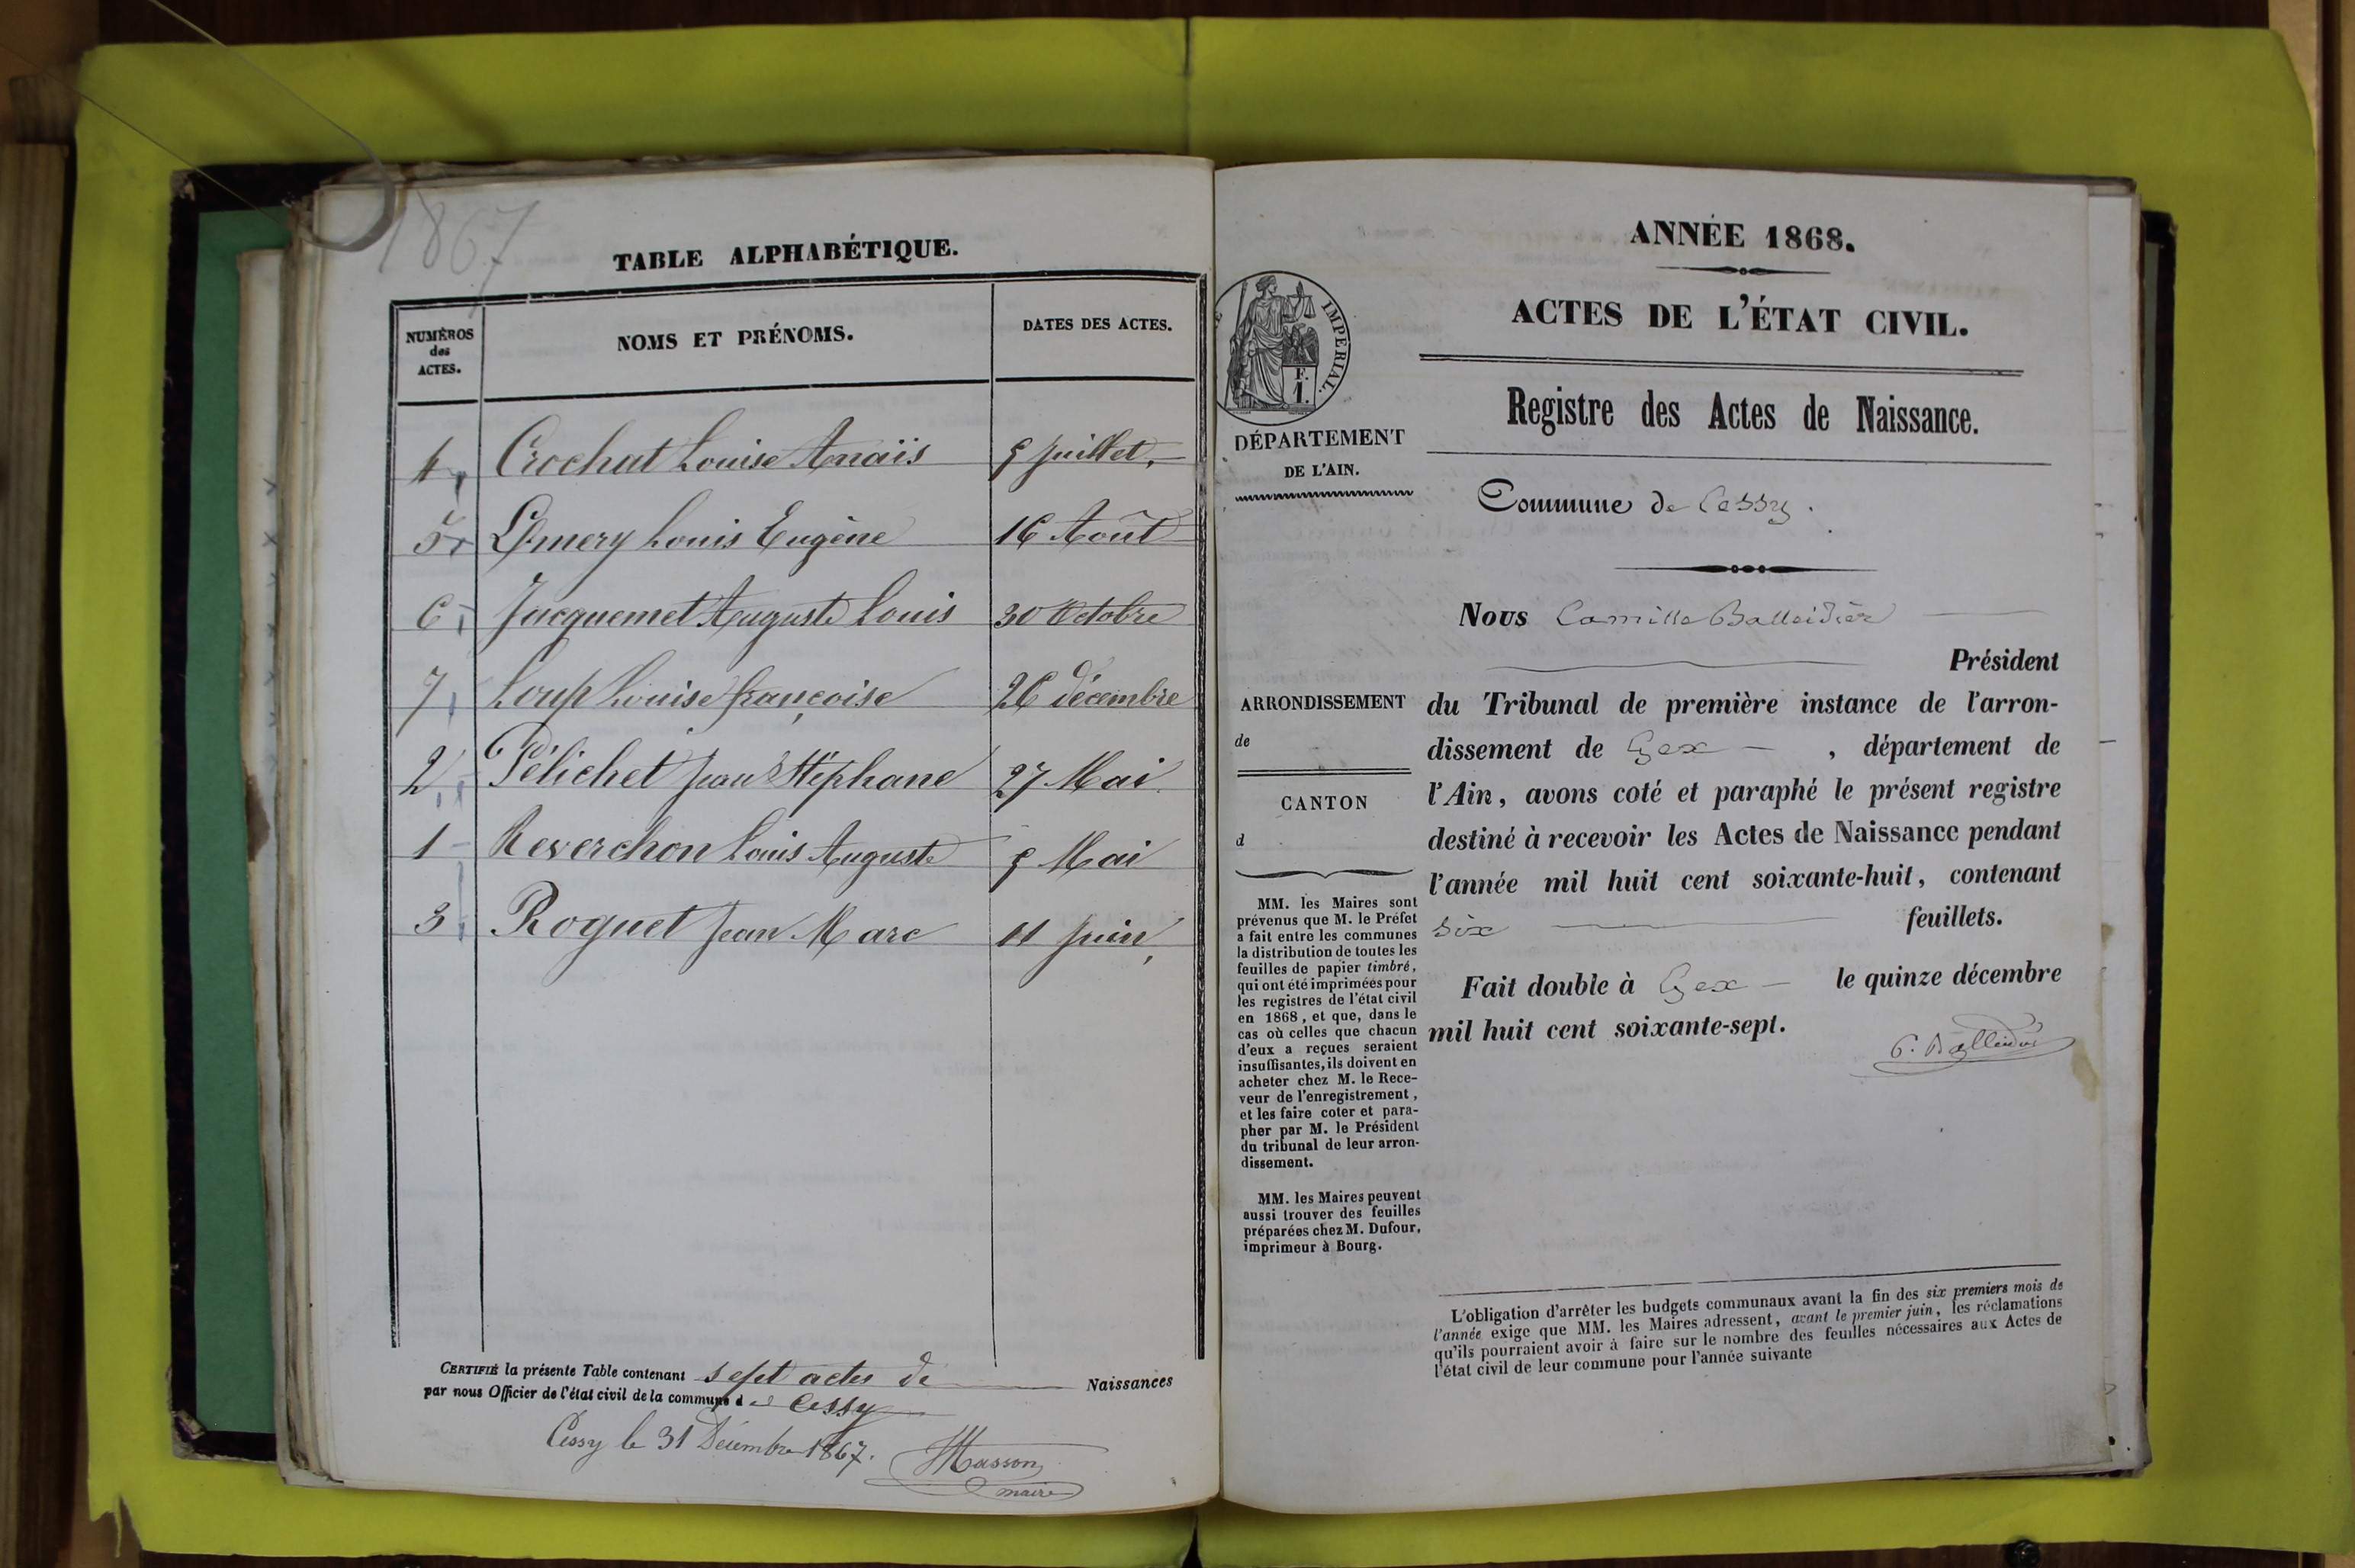 1867
TABLE ALPHABÉTIQUE.
NUMÉROS
des
ACTES.
NOMS ET PRÉNOMS.
DATES DES ACTES.
4 Crochat Louise Anaïs 9 juillet.
5 Emery Louis Eugène 16 Août
6 Jacquemet Auguste Louis 30 Octobre
7 Loup Louise françoise 26 décembre
2 Pélichet Jean Stéphane 27 Mai
1 Reverchon Louis Auguste 9 Mai
3 Roguet Jean Marc 11 juin,
CERTIFIÉ la présente Table contenant sept actes de Naissances
par nous Officier de l'état civil de la commune de Cessy
Cessy le 31 Décembre 1867.
Masson
maire
ANNÉE 1868.
ACTES DE L'ÉTAT CIVIL.
Registre des Actes de Naissance.
IMPÉRIAL.
F.
1.
DÉPARTEMENT
DE L'AIN.
ARRONDISSEMENT
de
CANTON
d
MM. les Maires sont
prévenus que M. le Préfet
a fait entre les communes
la distribution de toutes les
feuilles de papier timbré,
qui ont été imprimées pour
les registres de l'état civil
en 1868, et que, dans le
cas où celles que chacun
d'eux a reçues seraient
insuffisantes, ils doivent en
acheter chez M. le Rece-
veur de l'enregistrement,
et les faire coter et para-
pher par M. le Président
du tribunal de leur arron-
dissement.
MM. les Maires peuvent
aussi trouver des feuilles
préparées chez M. Dufour,
imprimeur à Bourg.
Commune de Cessy.
Nous Camille Balleidier
Président
du Tribunal de première instance de l'arron-
dissement de Gex, département de
l'Ain, avons coté et paraphé le présent registre
destiné à recevoir les Actes de Naissance pendant
l'année mil huit cent soixante-huit, contenant
six feuillets.
Fait double à Gex le quinze décembre
mil huit cent soixante-sept.
C. Balleidier
L'obligation d'arrêter les budgets communaux avant la fin des six premiers mois de
l'année exige que MM. les Maires adressent, avant le premier juin, les réclamations
qu'ils pourraient avoir à faire sur le nombre des feuilles nécessaires aux Actes de
l'état civil de leur commune pour l'année suivante